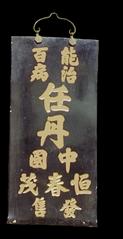 能治
百病
任丹
中國
恒春茂
發售